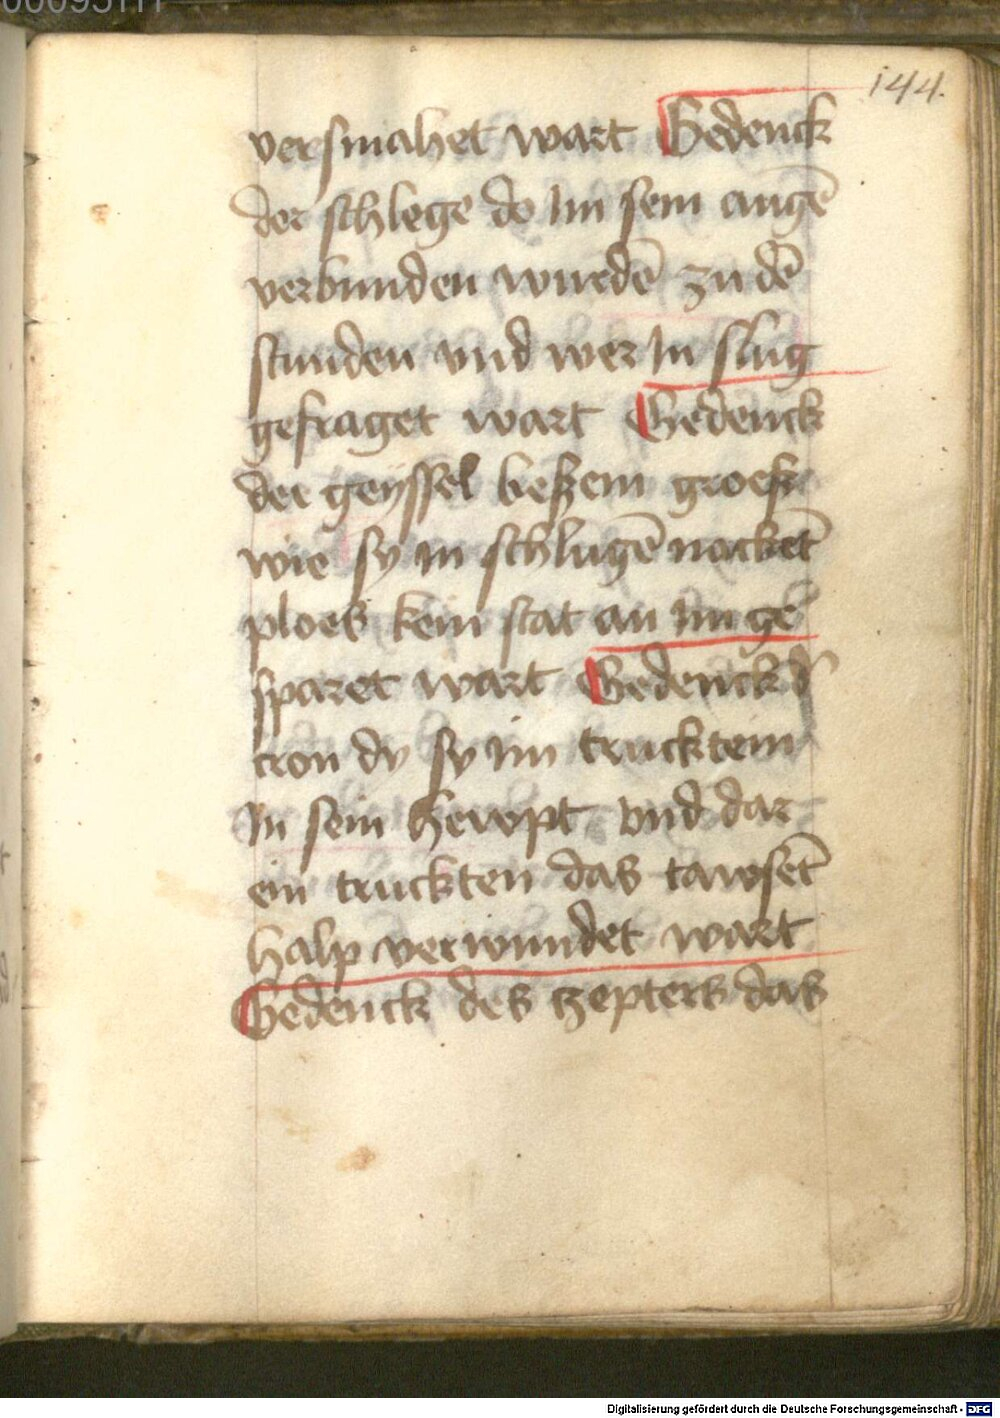 144.
versmahet wart Gedenck
der schlege do Im sein augē
verbunden wurdē zu dē
stunden vnd wer In slug
gefraget wart Gedenck
der geyssel beszem groesz
wie sy in schlugē nacket
ploes kein stat an im ge
sparet wart Gedenck d'
cron dy sy im trucktein
In sein hewpt vnd dar
ein truckten das tawsēt
halp verwundet wart
Gedenck des tzepters das
Digitalisierung gefördert durch die Deutsche Forschungsgemeinschaft - DFG